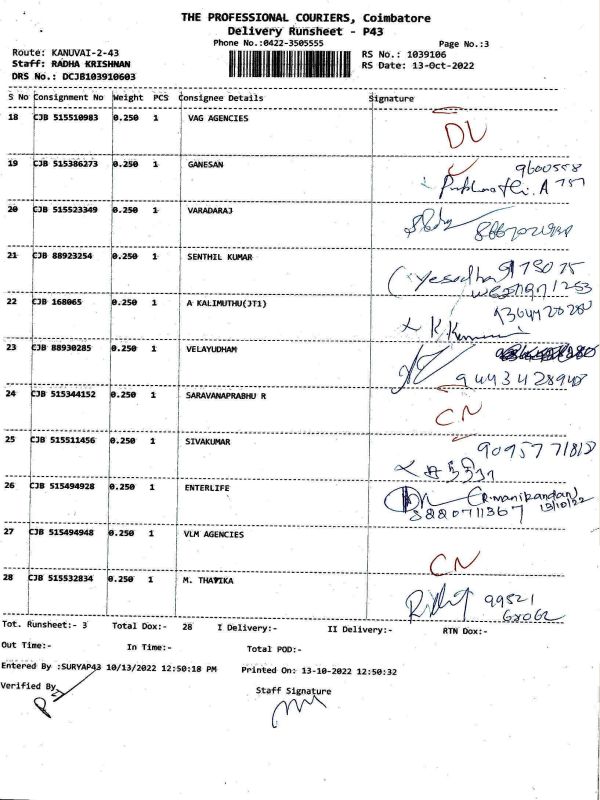 THE PROFESSIONAL COURIERS, Coimbatore
Delivery Runsheet - P43
Phone No.:0422-3505555
Page No.:3
Route: KANUVAI-2-43
RS No.: 1039106
Staff: RADHA KRISHNAN
RS Date: 13-Oct-2022
DRS No.: DCJB103910603
S No Consignment No Weight PCS Consignee Details Signature
18 CJB 515510983 0.250 1 VAG AGENCIES
19 CJB 515386273 0.250 1 GANESAN
20 CJB 515523349 0.250 1 VARADARAJ
21 CJB 88923254 0.250 1 SENTHIL KUMAR
22 CJB 168065 0.250 1 A KALIMUTHU(JT1)
23 CJB 88930285 0.250 1 VELAYUDHAM
9443428940
24 CJB 515344152 0.250 1 SARAVANAPRABHU R
CN
25 CJB 515511456 0.250 1 SIVAKUMAR
26 CJB 515494928 0.250 1 ENTERLIFE
R.manikandan
8220711367 13/10/22
27 CJB 515494948 0.250 1 VLM AGENCIES
CN
28 CJB 515532834 0.250 1 M. THAVIKA
99521
Tot. Runsheet:- 3 Total Dox:- 28 I Delivery:- II Delivery:- RTN Dox:-
Out Time:- In Time:- Total POD:-
Entered By :SURYAP43 10/13/2022 12:50:18 PM Printed On: 13-10-2022 12:50:32
Verified By
Staff Signature